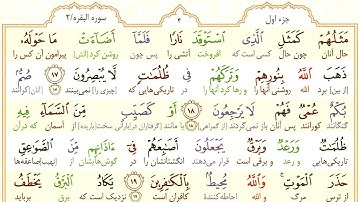 جزء اول ۴ سوره البقره/۲
مَثَلُهُمْ كَمَثَلِ الَّذِی اسْتَوْقَدَ نَارًا فَلَمَّا أَضَاءَتْ مَا حَوْلَهُ
مثال آنان چون حال کسی است که افروخت آتشی را پس چون روشن کرد [آتش] پیرامون آن کس را
ذَهَبَ اللَّهُ بِنُورِهِمْ وَتَرَكَهُمْ فِی ظُلُمَاتٍ لَّا يُبْصِرُونَ ۱۷ صُمٌّ
برد الله روشنی آنها را و رها کرد آنها را در [چیزی را] نمی‌بینند کرانند
بُكْمٌ عُمْیٌ فَهُمْ لَا يَرْجِعُونَ ۱۸ أَوْ كَصَيِّبٍ مِّنَ السَّمَاءِ فِيهِ
گنگانند کورانند پس آنان باز نمی‌گردند یا از آسمان که در آن
ظُلُمَاتٌ وَرَعْدٌ وَبَرْقٌ يَجْعَلُونَ أَصَابِعَهُمْ فِی ءَاذَانِهِم مِّنَ الصَّوَاعِقِ
و رعد و برقی است قرار می‌دهند انگشتانشان را در گوش‌هایشان از
حَذَرَ الْمَوْتِ وَاللَّهُ مُحِيطٌ بِالْكَافِرِينَ ۱۹ يَكَادُ الْبَرْقُ يَخْطَفُ
از ترس مرگ و الله احاطه‌کننده به کافران است نزدیک است که برق برباید